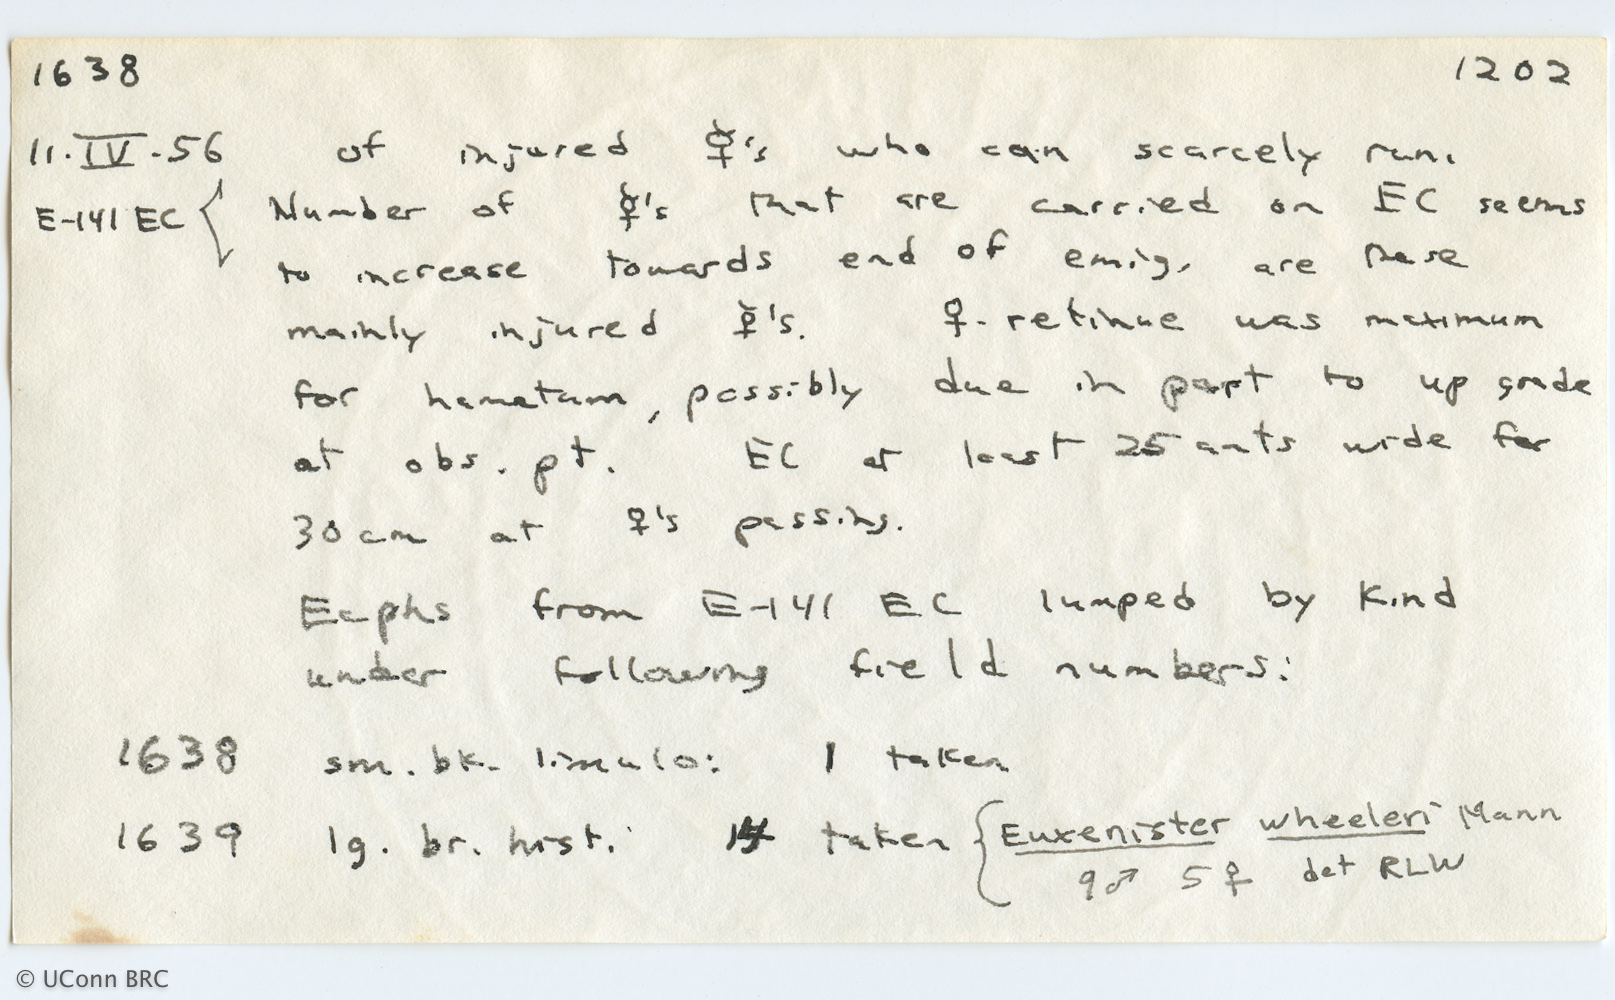 1638 1202
11.IV.56 of injured ☿'s who can scarcely run.
E-141 EC { Number of ☿'s that are carried on EC seems
to increase towards end of emig, are these
mainly injured ☿'s. ♀-retinue was maximum
for hamatum, possibly due in part to up grade
at obs. pt. EC at least 25 ants wide for
30 cm at ♀'s passing.
Ecphs from E-141 EC lumped by kind
under following field numbers:
1638 sm. bk. limulo: 1 taken
1639 lg. br. hist.: 14 taken { Euxenister wheeleri Mann
9♂ 5♀ det RLW
© UConn BRC